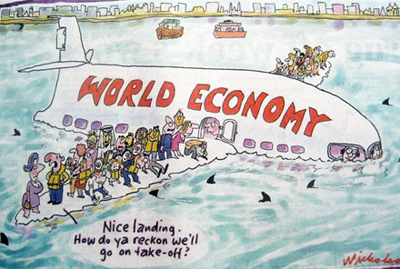 WORLD ECONOMY
Nice landing.
How do ya reckon we'll
go on take-off?
Nicholson